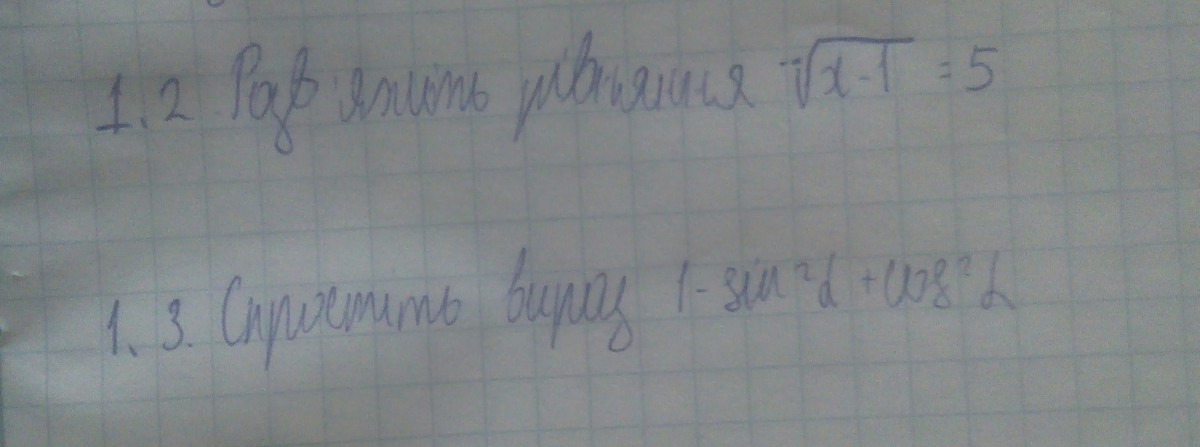 1.2. Розв'яжіть рівняння √x-1 = 5
1.3. Спростить вираз 1-sin²α+cos²α